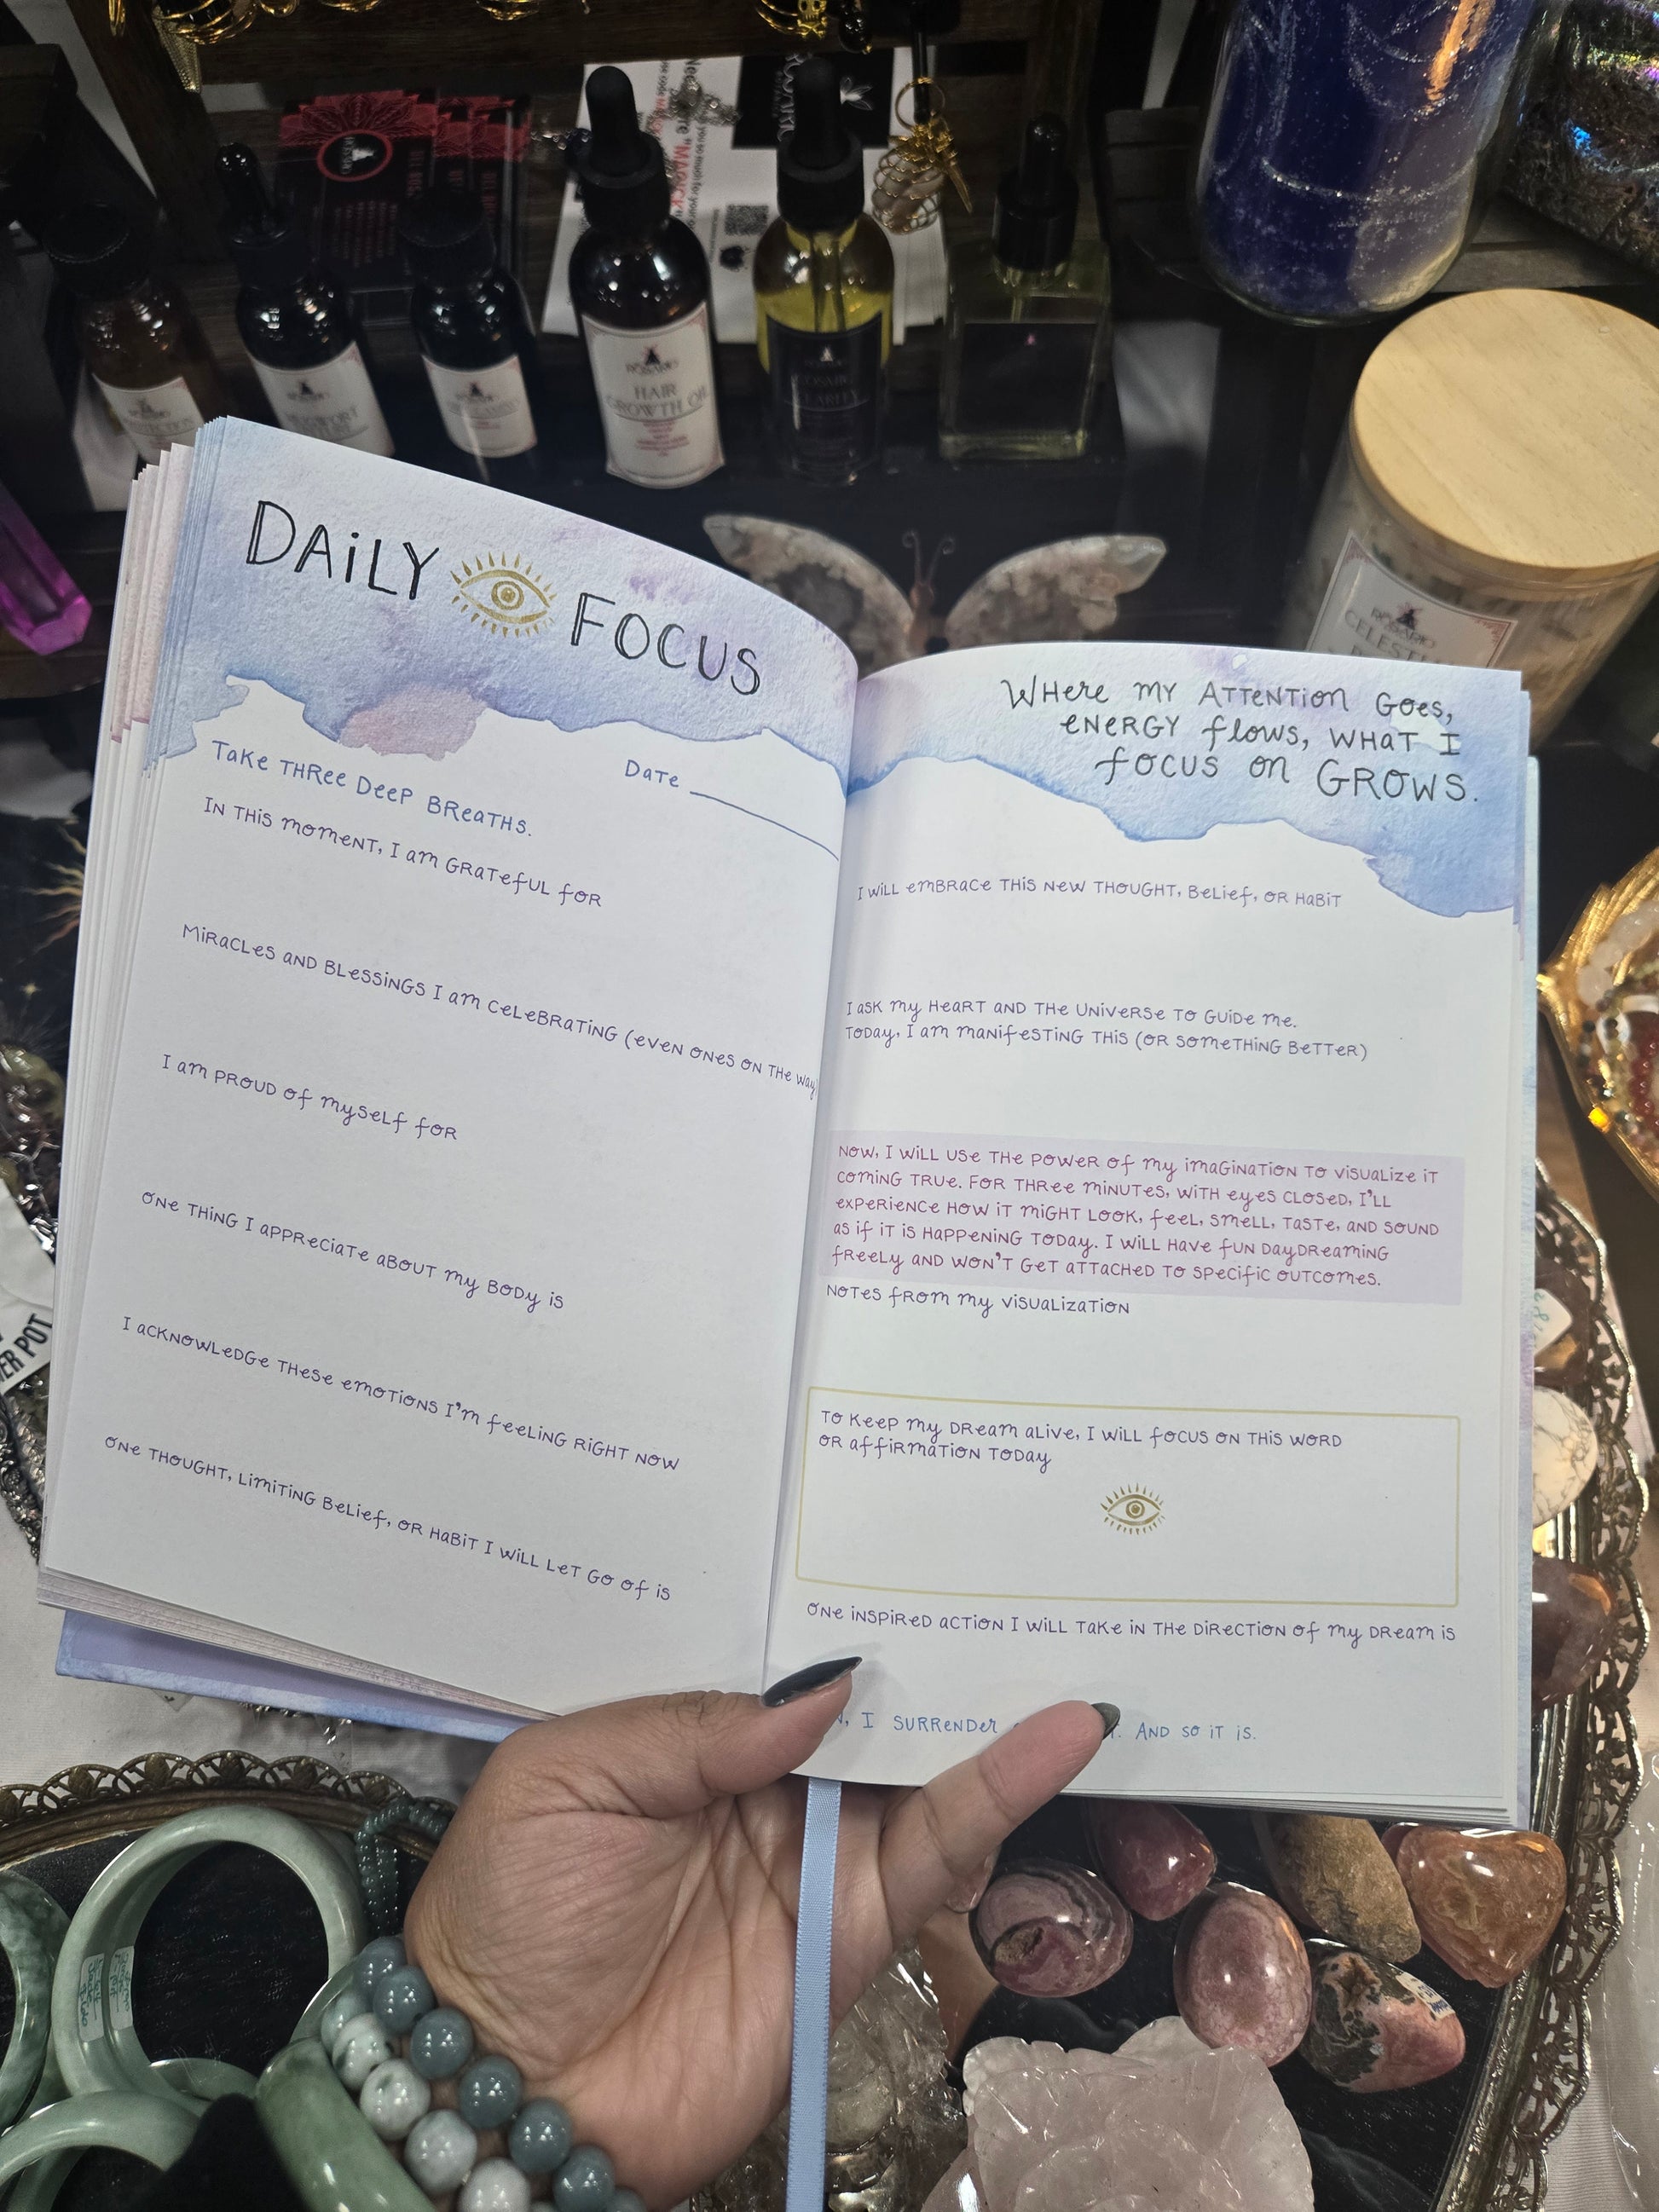 ROSARIO
HAIR
GROWTH OIL
ROSARIO
CLARITY
ROSARIO
"MAGICK"
DAiLY FOCUS
Take THRee Deep BReaTHS.
Date
IN THiS momeNT, I am GRaTefUL foR
MiRacLes aND BLessiNGS I am ceLeBRaTiNG (eveN oNes oN THe way)
I am PROUD of myseLf foR
oNe THiNG I aPPReciaTe aBoUT my BoDy is
I acKNowLeDGe THese emoTioNS I'm feeLiNG RiGHT Now
oNe THoUGHT, LimiTiNG BeLief, oR HaBiT I wiLL LeT Go of is
WHere my ATTeNTioN Goes,
eNeRGY fLows, WHaT I
focus oN GROWS.
I wiLL emBRace THis New THoUGHT, BeLief, oR HaBiT
I asK my HeaRT aND THe UNiveRse To GUiDe me.
ToDay, I am maNifesTiNG THis (oR someTHiNG BeTTeR)
Now, I wiLL Use THe PoweR of my imaGiNaTioN To visUaLize iT
comiNG TRUe. foR THRee miNUTes, wiTH eyes cLoseD, I'LL
exPeRieNce How iT miGHT LooK, feeL, smeLL, TasTe, aND soUND
as if iT is HaPPeNiNG ToDay. I wiLL Have fUN DayDReamiNG
fReeLy aND woN'T GeT aTTacHeD To sPecific oUTcomes.
NoTes fRom my visUaLizaTioN
To KeeP my DReam aLive, I wiLL focUs oN THis woRD
oR affiRmaTioN ToDay
oNe iNsPiReD acTioN I wiLL TaKe iN THe DiRecTioN of my DReam is
I sURReNDeR
AND so iT is.